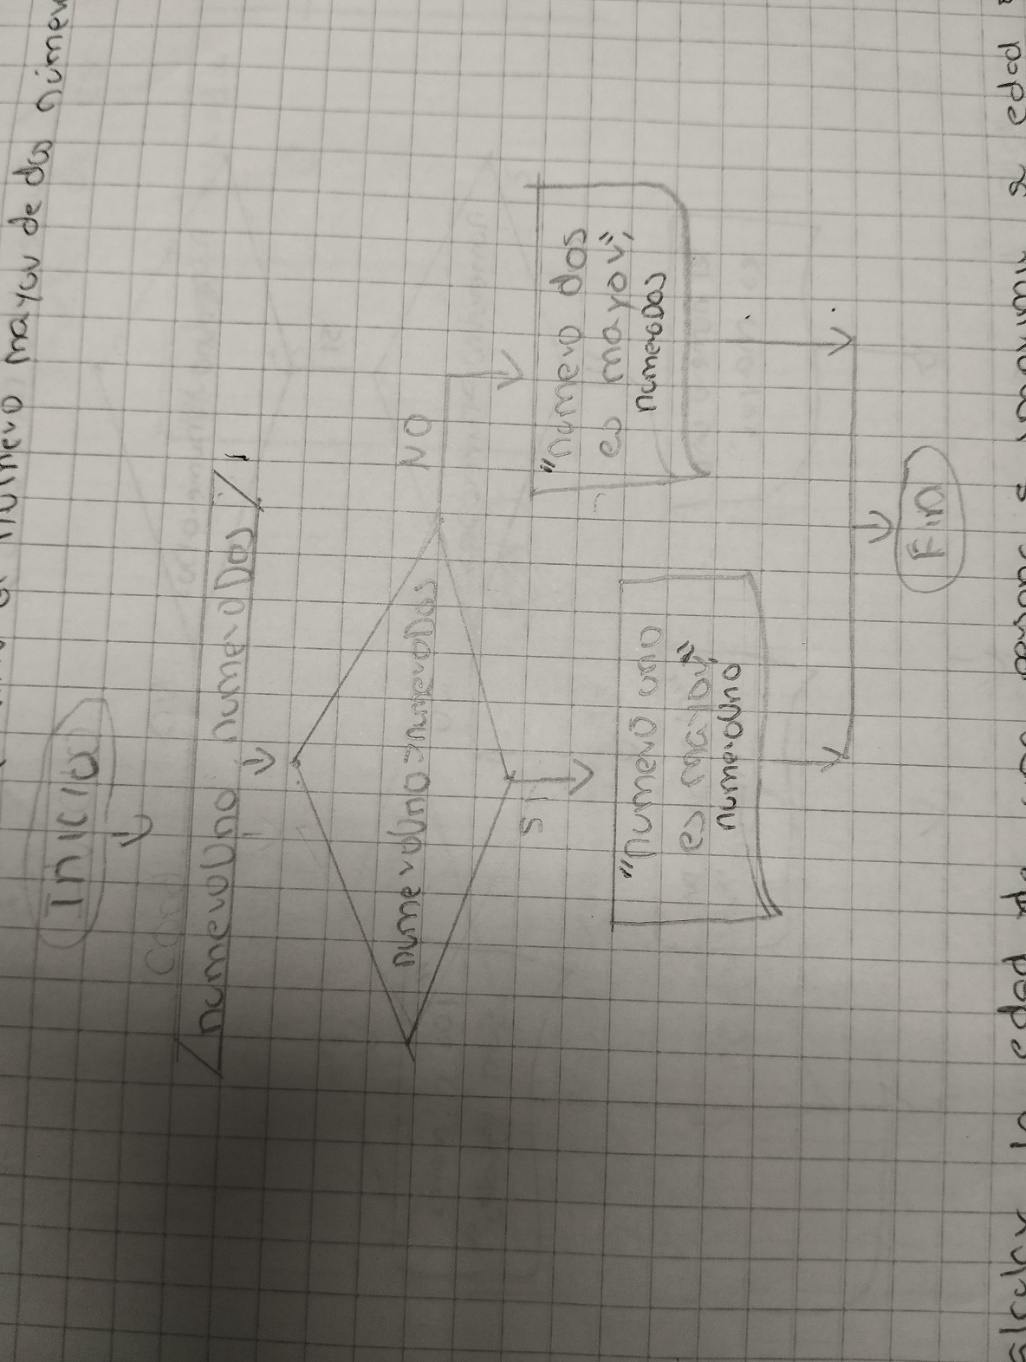 numero mayor de dos númer
Inicio
numeroUno numeroDos
numeroUno > numeroDos
NO
SI
"numero dos
es mayor",
numeroDos
"numero uno
es mayor",
numeroUno
Fin
la edad de personas 2 edad